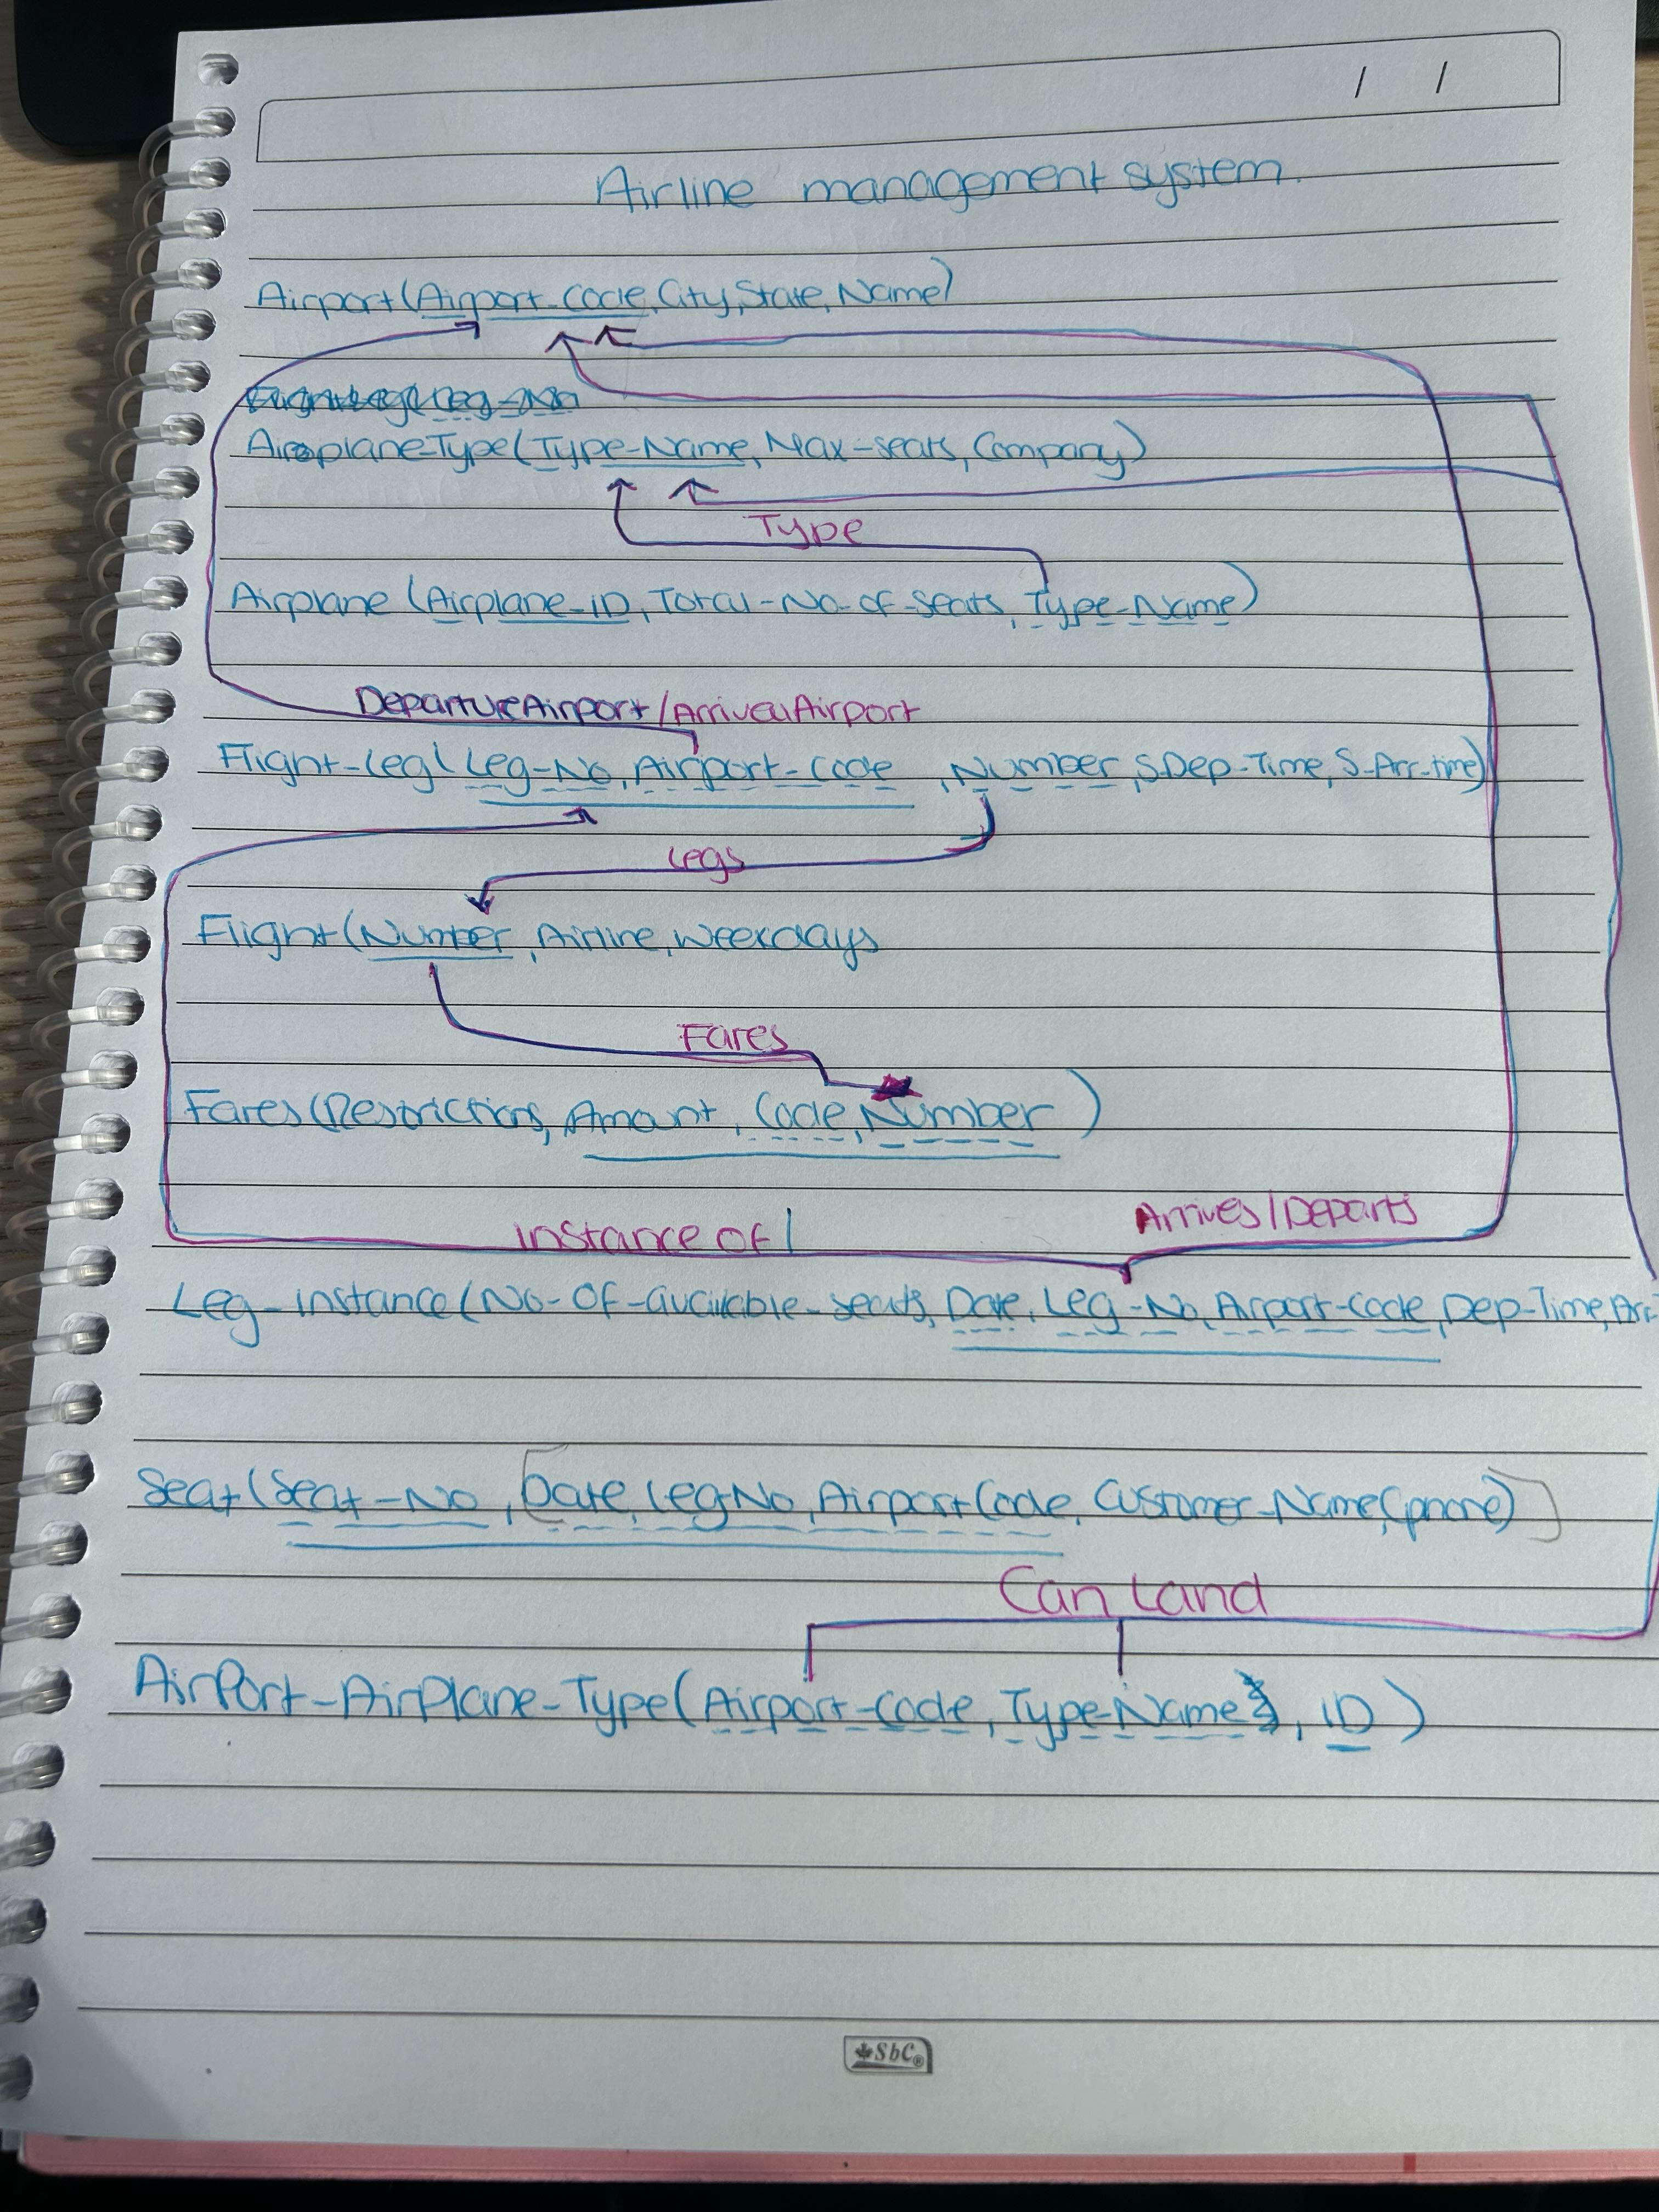 / /
Airline management system.
Airport(Airport-Code, City, State, Name)
AiroplaneType(Type-Name, Max-seats, Company)
Type
Airplane (Airplane-ID, Total-No-of-Seats, Type-Name)
DepartureAirport/ArrivalAirport
Flight-Leg(Leg-No, Airport-Code, Number, S.Dep-Time, S-Arr-time)
Legs
Flight(Number, Airline, Weekdays
Fares
Fares(Restrictions, Amount, Code, Number)
Arrives/Departs
instance of
Leg-instance(No-Of-available-seats, Date, Leg-No, Airport-Code, Dep-Time, Arr-
Seat(Seat-No, Date, LegNo, AirportCode, Customer-Name, Cphone)
Can Land
AirPort-AirPlane-Type(Airport-Code, Type-Name, ID)
SbC®